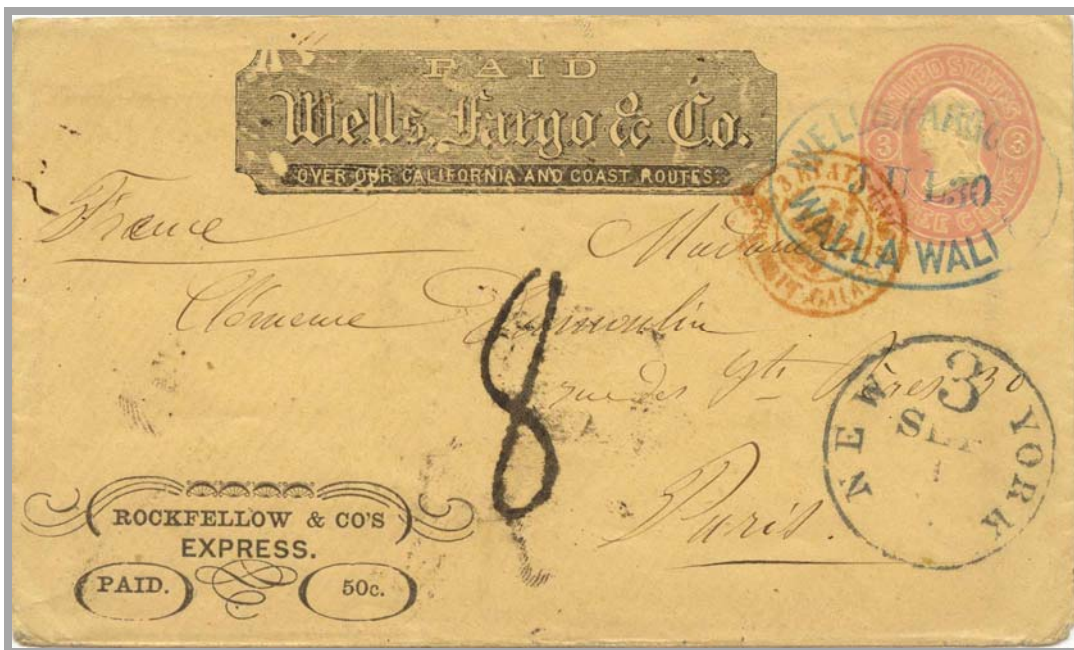 PAID
Wells, Fargo & Co.
OVER OUR CALIFORNIA AND COAST ROUTES.
UNITED STATES
3 3
THREE CENTS
WELLS FARGO
JUL 30
WALLA WALL
France
Madame
Clémence Desmoulin
rue des Pères 30
Paris.
8
NEW YORK
3
SEP
ROCKFELLOW & CO'S
EXPRESS.
PAID.
50c.